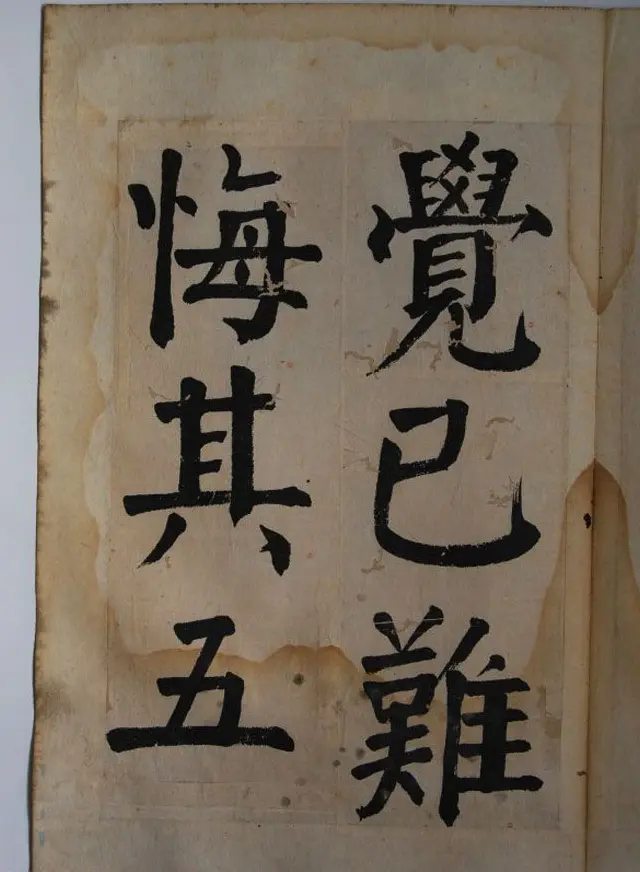 覺已難
悔其五